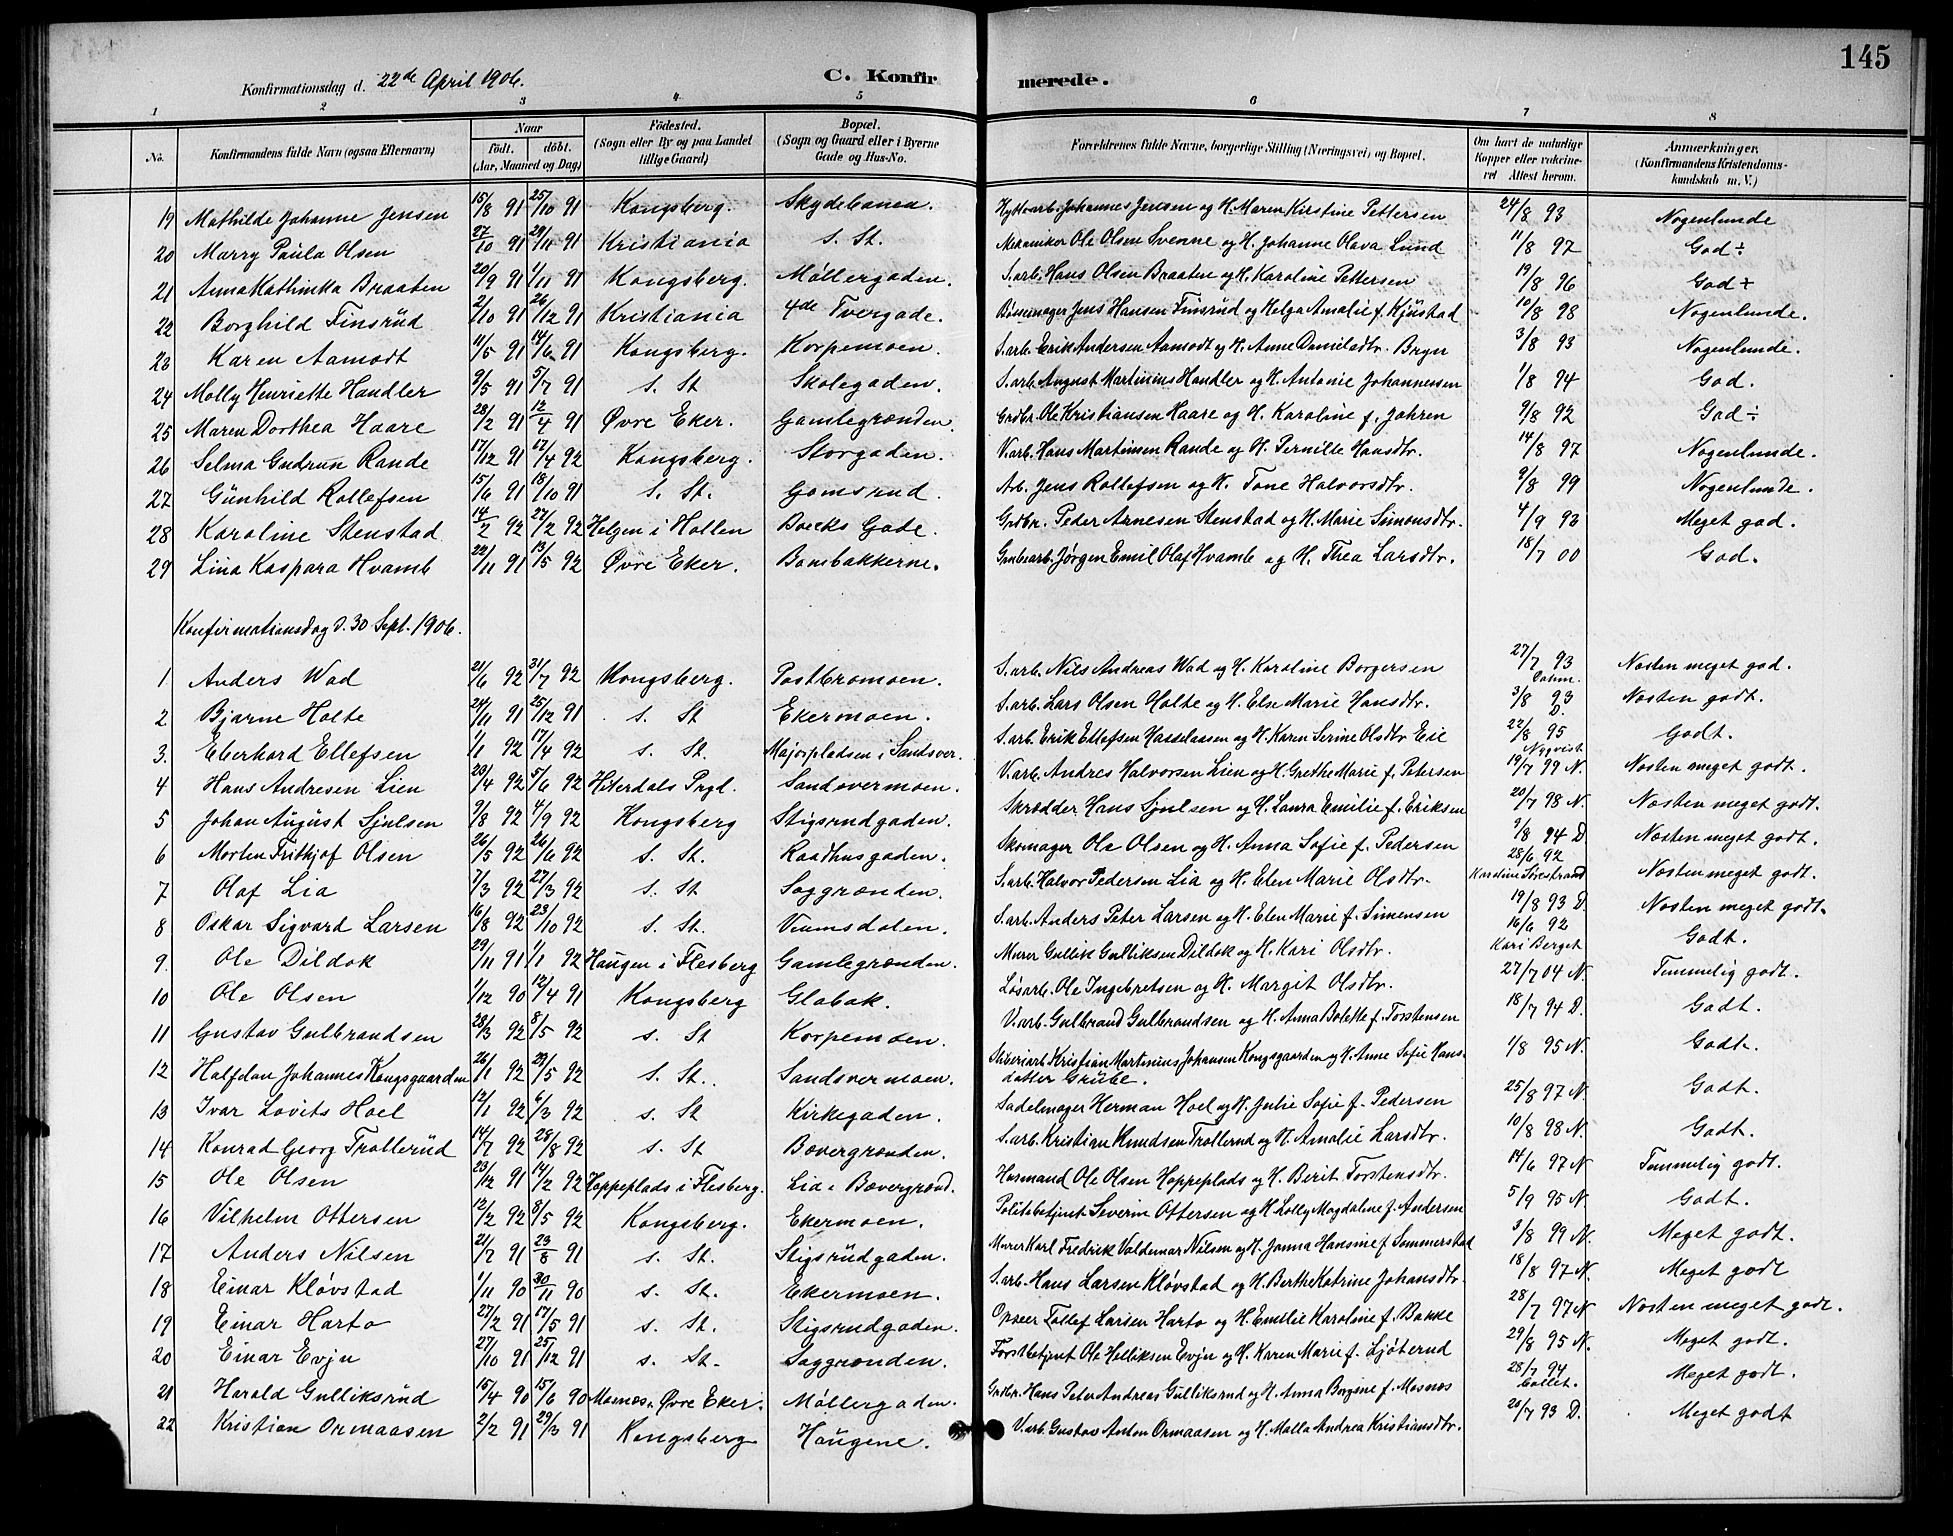 145
Konfirmationsdag d. 22de April 1906. C. Konfirmerede.
1 2 3 4 5 6 7 8
No. Konfirmandens fulde Navn (ogsaa Efternavn) Naar födt. döbt. (Aar, Maaned og Dag) Födested. (Sogn eller By og paa Landet tillige Gaard) Bopæl. (Sogn og Gaard eller i Byerne Gade og Hus-No. Forældrenes fulde Navne, borgerlige Stilling (Næringsvei) og Bopæl. Om havt de naturlige Kopper eller vakcineret Attest herom. Anmærkninger. (Konfirmandens Kristendomskundskab m. V.)
19 Mathilde Johanne Jensen 15/8 91 25/10 91 Kongsberg. Skydebanen. Hyttearb. Johannes Jensen og H. Maren Kirstine Pettersen 24/8 93 Nogenlunde
20 Marry Paula Olsen 27/10 91 29/11 91 Kristiania s. St. Mekaniker Ole Olsen Svenne og H. Johanne Olava Lund 11/8 97 God ÷
21 Anna Kathinka Braaten 20/9 91 1/11 91 Kongsberg. Møllergaden. S.arb. Hans Olsen Braaten og H. Karoline Pettersen 19/8 96 God ÷
22 Borghild Finsrud 2/10 91 26/12 91 Kristiania 4de Tvergade. Bøssemager Jens Hansen Finsrud og Helga Amalie f. Kjustad 10/8 98 Nogenlunde.
23 Karen Aamodt 11/5 91 14/6 91 Kongsberg. Korpemoen. S.arb. Erik Andersen Aamodt og H. Anne Danielsdtr. Bryn 3/8 93 Nogenlunde.
24 Molly Henriette Handler 9/5 91 5/7 91 s. St Skolegaden. S.arb. August Martinius Handler og H. Antonie Johannesen 1/8 94 God.
25 Maren Dorthea Haare 28/2 91 12/4 91 Øvre Eker. Gamlegrænden. Grdbr. Ole Kristiansen Haare og H. Karoline f. Johren 9/8 92 God ÷
26 Selma Gudrun Rande 17/12 91 17/4 92 Kongsberg. Storgaden. V.arb. Hans Martinsen Rande og H. Pernille Hansdtr. 14/8 97 Nogenlunde.
27 Gunhild Rollefsen 15/6 91 18/10 91 s. St. Gomsrud. Arb. Jens Rollefsen og H. Tone Halvorsdtr. 9/8 99 Nogenlunde.
28 Karoline Stenstad 14/2 92 27/2 92 Helgen i Hollen Boecks Gade. Grdbr. Peder Arnesen Stenstad og H. Marie Simonsdtr. 4/9 93 Meget god.
29 Lina Kaspara Hvamb 22/11 91 13/5 92 Øvre Eker. Bombakkerne. Grubearb. Jørgen Emil Olaf Hvamb og H. Thea Larsdtr. 18/7 00 God.
Konfirmationsdag d. 30 Sept. 1906.
1 Anders Wad 21/6 92 31/7 92 Kongsberg. Postbromoen. S.arb. Nils Andreas Wad og H. Karoline Borgersen 27/7 93 Næsten meget god.
2 Bjarne Holte 24/11 91 25/12 91 s. St Ekermoen. S.arb. Lars Olsen Holte og H. Else Marie Hansdtr. 3/8 93 D. Næsten godt.
3. Eberhard Ellefsen 1/1 92 17/4 92 s. St. Majorpladsen i Sandsver. S.arb. Erik Ellefsen Hasselaasen og H. Karen Serine Olsdtr Eie 22/8 95 Nyqvist Godt.
4 Hans Andresen Lien 23/4 92 5/6 92 Hiterdals Prgl. Sandsvermoen. V.arb. Andres Halvorsen Lien og H. Grethe Marie f. Petersen 19/7 99 N. Næsten meget godt.
5 Johan August Sjulsen 9/8 92 4/9 92 Kongsberg Stigsrudgaden. Skrædder Hans Sjulsen og H. Laura Emilie f. Eriksen 20/7 98 N. Næsten meget godt.
6 Morten Frithjof Olsen 26/5 92 26/6 92 s. St. Raadhusgaden. Skomager Ole Olsen og H. Anna Sofie f. Pedersen 9/8 94 D. Næsten meget godt.
7 Olaf Lia 7/3 92 27/3 92 s. St Saggrænden. S.arb. Halvor Pedersen Lia og H. Elen Marie Olsdtr. 28/6 92 Karoline Svestrand Næsten meget godt.
8 Oskar Sigvard Larsen 16/8 92 23/10 92 s. St. Viumsdalen. S.arb. Anders Peter Larsen og H. Elen Marie f. Simensen 19/8 93 D. Næsten meget godt.
9. Ole Dildok 29/11 91 1/1 92 Haugen i Flesberg Gamlegrænden. Murer Gullik Gulliksen Dildok og H. Kari Olsdtr. 16/6 92 Kari Berget Godt.
10 Ole Olsen 1/12 90 12/4 91 Kongsberg Glabak. Løsarb. Ole Ingebretsen og H. Margit Olsdtr. 27/7 04 N. Temmelig godt.
11 Gustav Gulbrandsen 28/3 92 8/5 92 s. St Korpemoen. V.arb. Gulbrand Gulbrandsen og H. Anna Bolette f. Torstensen 18/7 94 D. Godt.
12 Halfdan Johannes Kongsgaarden 26/1 92 29/5 92 s. St. Sandsvermoen. Sliberiarb. Kristian Martinius Johansen Kongsgaarden og H. Anne Sofie Hans-
datter Grube. 1/8 95 N. Godt.
13 Ivar Lovits Hoel 12/1 92 6/3 92 s. St Kirkegaden. Sadelmager Herman Hoel og H. Julie Sofie f. Pedersen 25/8 97 N. Godt.
14 Konrad Georg Trollerud 14/7 92 28/8 92 s. St Bævergrænden. S.arb. Kristian Knudsen Trollerud og H. Amalie Larsdtr. 10/8 98 N. Godt.
15 Ole Olsen 23/12 91 14/2 92 Hoppeplads i Flesberg. Lia i Bævergrænd. Husmand Ole Olsen Hoppeplads og H. Berit Torstensdtr. 14/6 97 N Temmelig godt.
16 Vilhelm Ottersen 12/2 92 8/5 92 Kongsberg. Ekermoen. Politibetjent Severin Ottersen og H Lolly Magdaline f. Andersen 5/9 95 N. Godt.
17 Anders Nilsen 21/7 91 23/8 91 s. St. Stigsrudgaden. Murer Karl Fredrik Valdemar Nilsen og H. Janna Hansine f. Sommerstad 3/8 99 N. Meget godt.
18 Einar Kløvstad 1/11 90 30/11 90 s. St. Ekermoen. S.arb. Hans Larsen Kløvstad og H. Berthe Katrine Johansdtr. 18/8 97 N. Meget godt
19 Einar Harto 27/2 91 17/5 91 s. St. Stigsrudgaden. Tollef Larsen Harto og H. Emilie Karoline f. Bakke 28/7 97 N Næsten meget godt.
20 Einar Evju 27/10 91 25/12 91 s. St. Saggrænden. Forstbetjent Ole Helliksen Evju og H. Karen Marie f. Ljøterud 29/8 95 N. Meget godt.
21 Harald Gulliksrud 15/4 90 15/6 90 Mosnes, Øvre Eker. Møllergaden. Grdbr. Hans Peter Andreas Gulliksrud og H. Anna Borgine f. Mosnes 28/7 94 Collet. Meget godt.
22 Kristian Ormaasen 2/2 91 29/3 91 Kongsberg Haugene. V.arb. Gustav Anton Ormaasen og H. Malla Andrea Kristiansdtr. 20/7 93 D. Meget godt